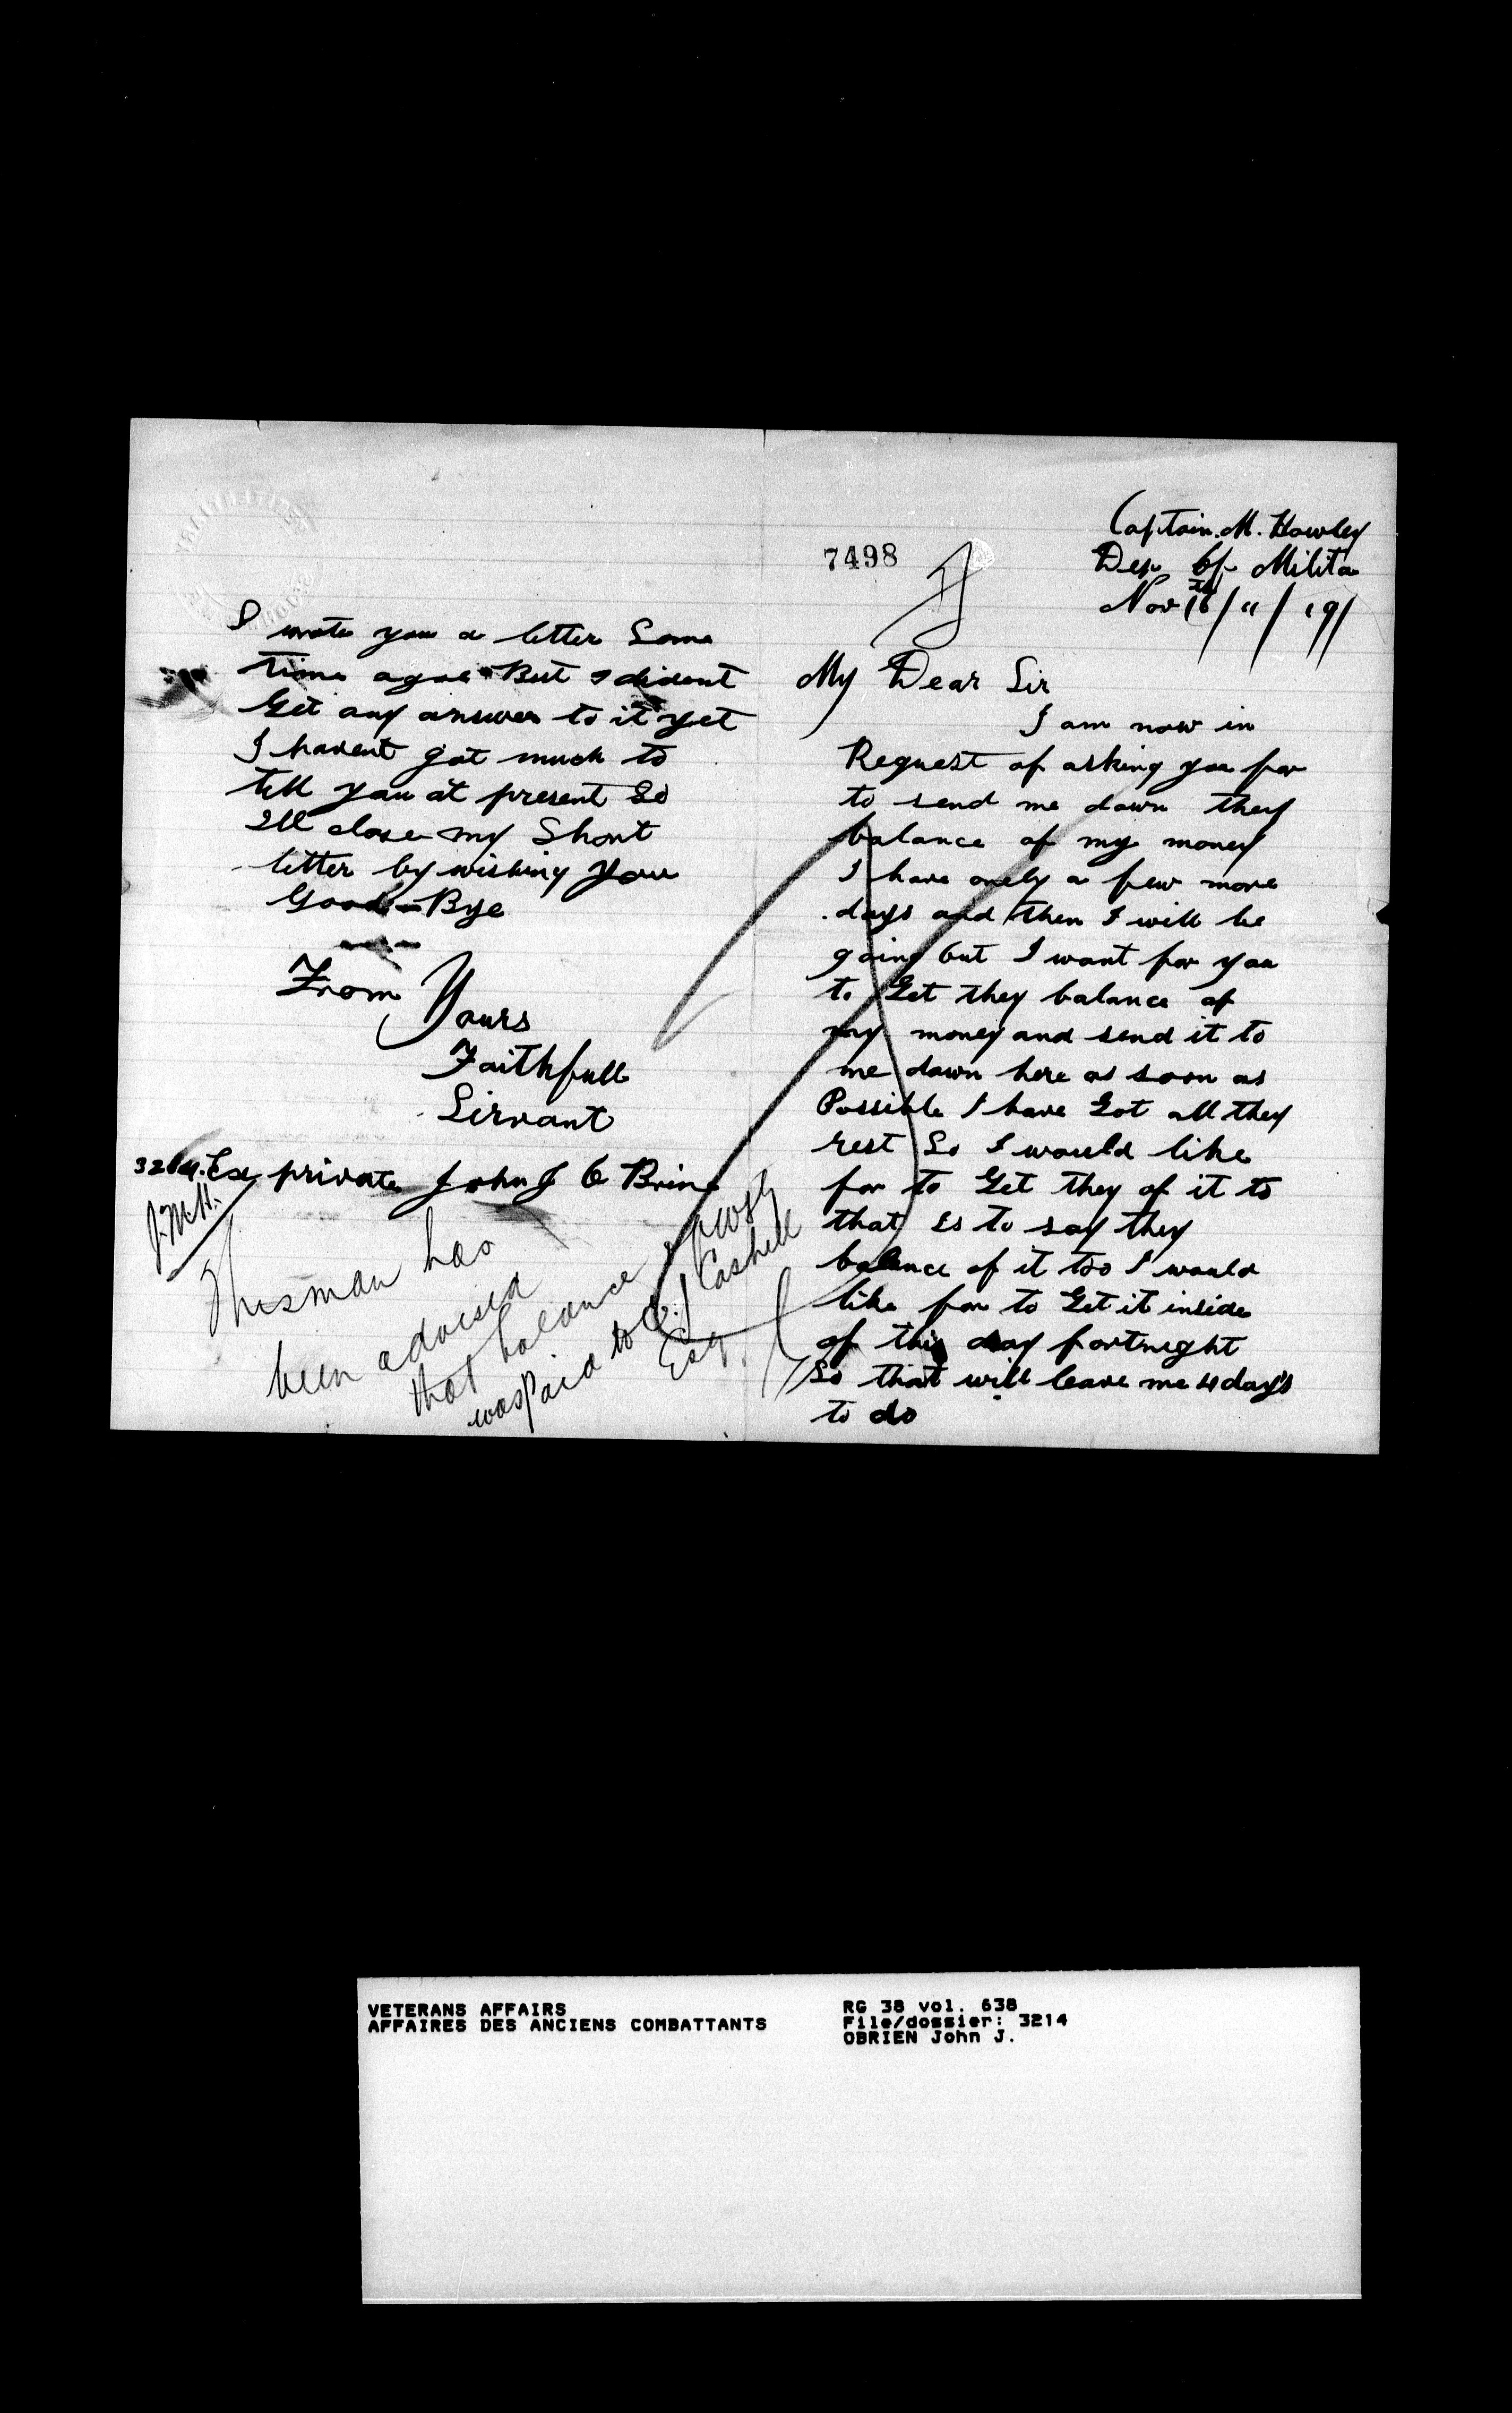 7498
Captain. M. Howley
Dep of Milita
Nov 16th / 11 / 19 /
My Dear Sir
I am now in
Request of asking you for
to send me down they
balance of my money
I have onely a few more
days and then I will be
going but I want for you
to Get they balance of
my money and send it to
me down here as soon as
Possible I have Got all they
rest So I would like
for to Get they of it to
that is to say they
balance of it too I would
like for to Get it inside
of this day fortnight
So that will leave me 4 day's
to do
I wrote you a letter Some
time agoe But I dident
Get any answer to it yet
I havent got much to
tell you at present So
Ill close my Short
letter by wishing you
Good-Bye
From Yours
Faithfull
Sirvant
3214. Ex private John J O Brine
J.M.H.
This man has
been advised
that balance of
was Paid to C. J Cashell
Esq.
VETERANS AFFAIRS
AFFAIRES DES ANCIENS COMBATTANTS
RG 38 vol. 638
File/dossier: 3214
OBRIEN John J.